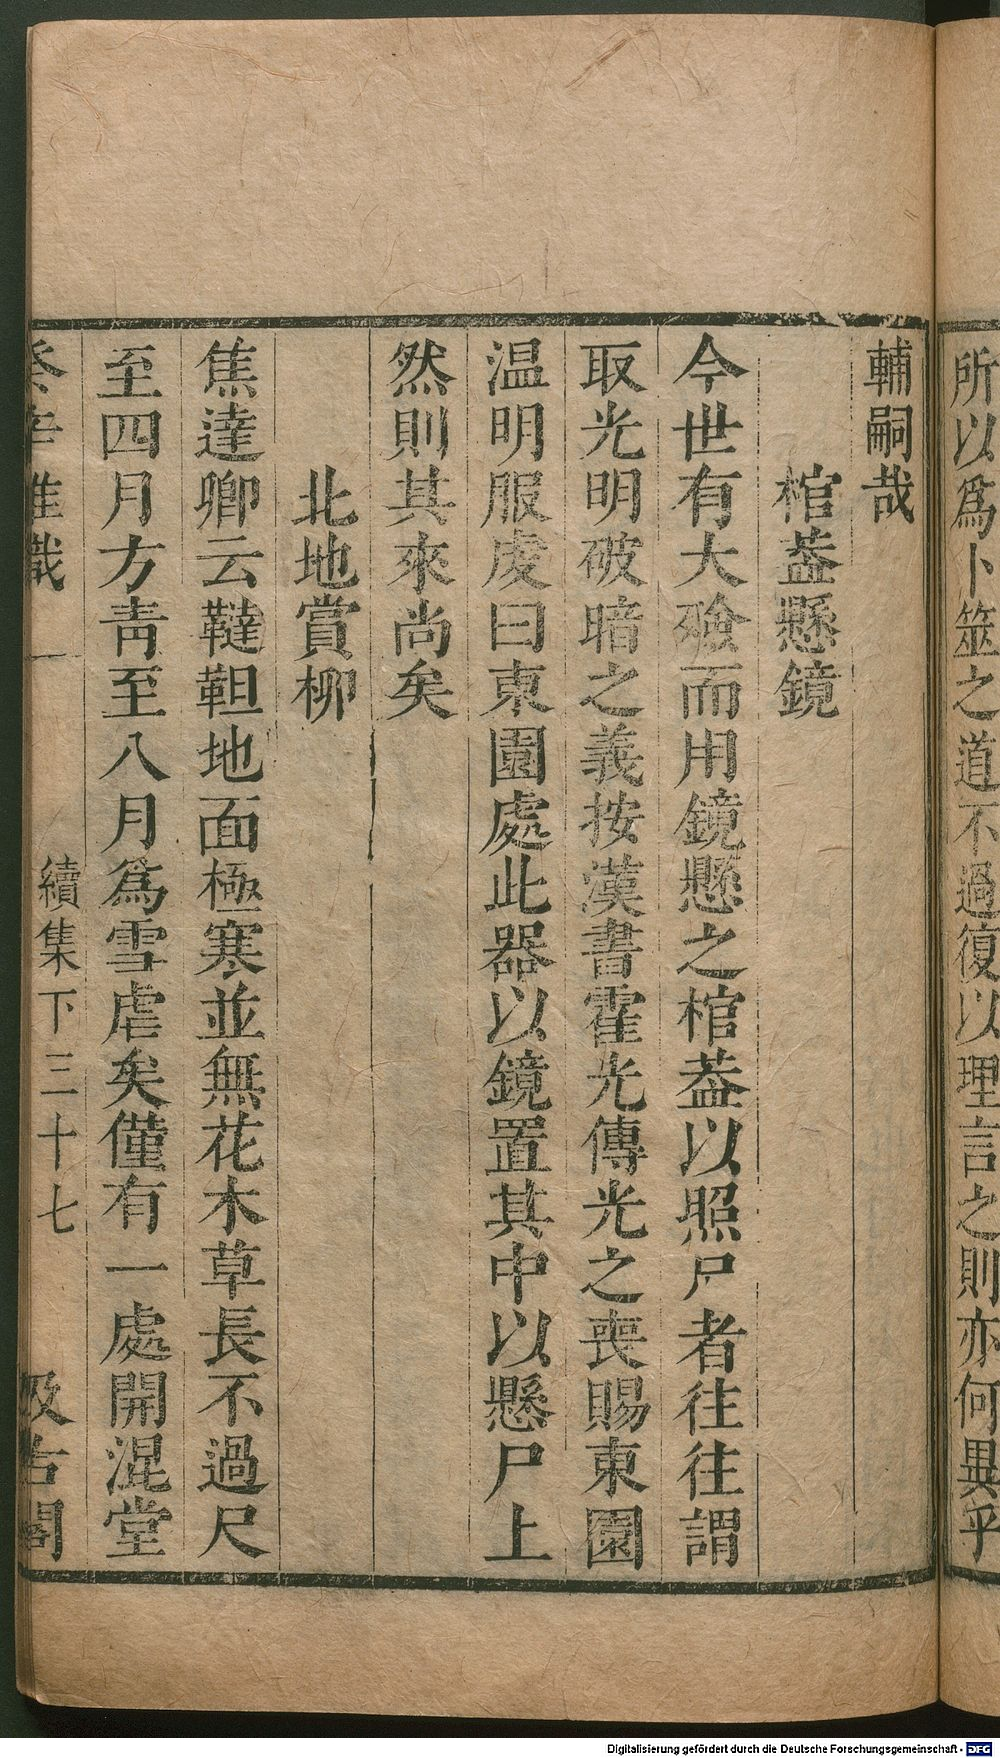 所以爲卜筮之道不過復以理言之則亦何異乎
輔嗣哉
棺葢懸鏡
今世有大殮而用鏡懸之棺葢以照尸者往往謂
取光明破暗之義按漢書霍光傳光之喪賜東園
温明服虔曰東園處此器以鏡置其中以懸尸上
然則其來尚矣
北地賞柳
焦達卿云韃靼地面極寒並無花木草長不過尺
至四月方靑至八月爲雪虐矣僅有一處開混堂
癸辛雜識 續集下三十七 汲古閣
Digitalisierung gefördert durch die Deutsche Forschungsgemeinschaft - DFG